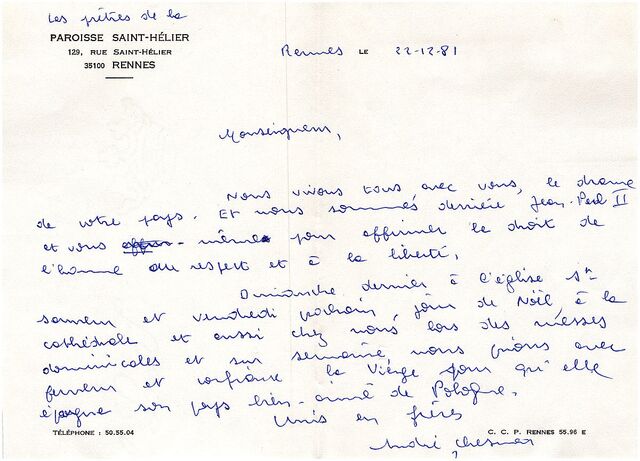 Les prêtres de la
PAROISSE SAINT-HÉLIER
129, RUE SAINT-HÉLIER
35100 RENNES
Rennes LE 22-12-81
Monseigneur,
Nous vivons tous, avec vous, le drame
de votre pays. Et nous sommes derrière Jean-Paul II
et vous - même pour affirmer le droit de
l'homme au respect et à la liberté.
Dimanche dernier à l'église St
sauveur et vendredi prochain, jour de Noël, à la
cathédrale et aussi chez nous lors des messes
dominicales et sur semaine, nous prions avec
ferveur et confiance la Vierge pour qu'elle
épargne son pays bien-aimé de Pologne.
Unis en frères
André
TÉLÉPHONE : 50.55.04
C. C. P. RENNES 55.96 E